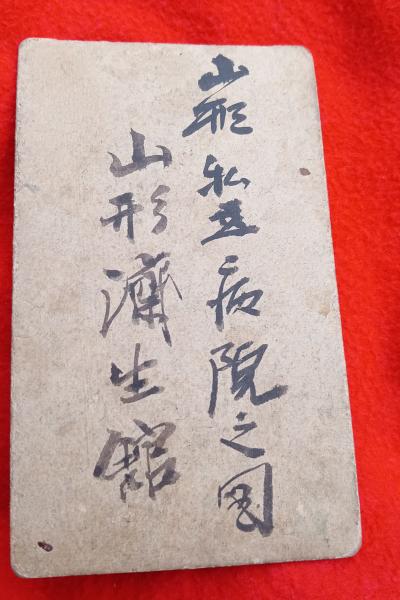 山形私立病院之図
山形済生館